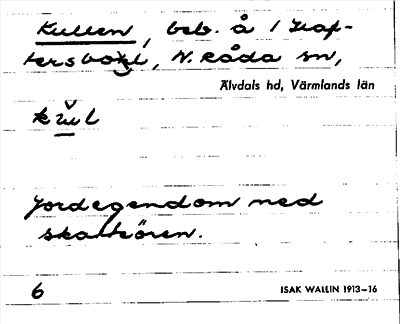 Kullen, beb. å 1
N. Råda sn,
Älvdals hd, Värmlands län
Jordegendom med
skattören.
6
ISAK WALLIN 1913–16